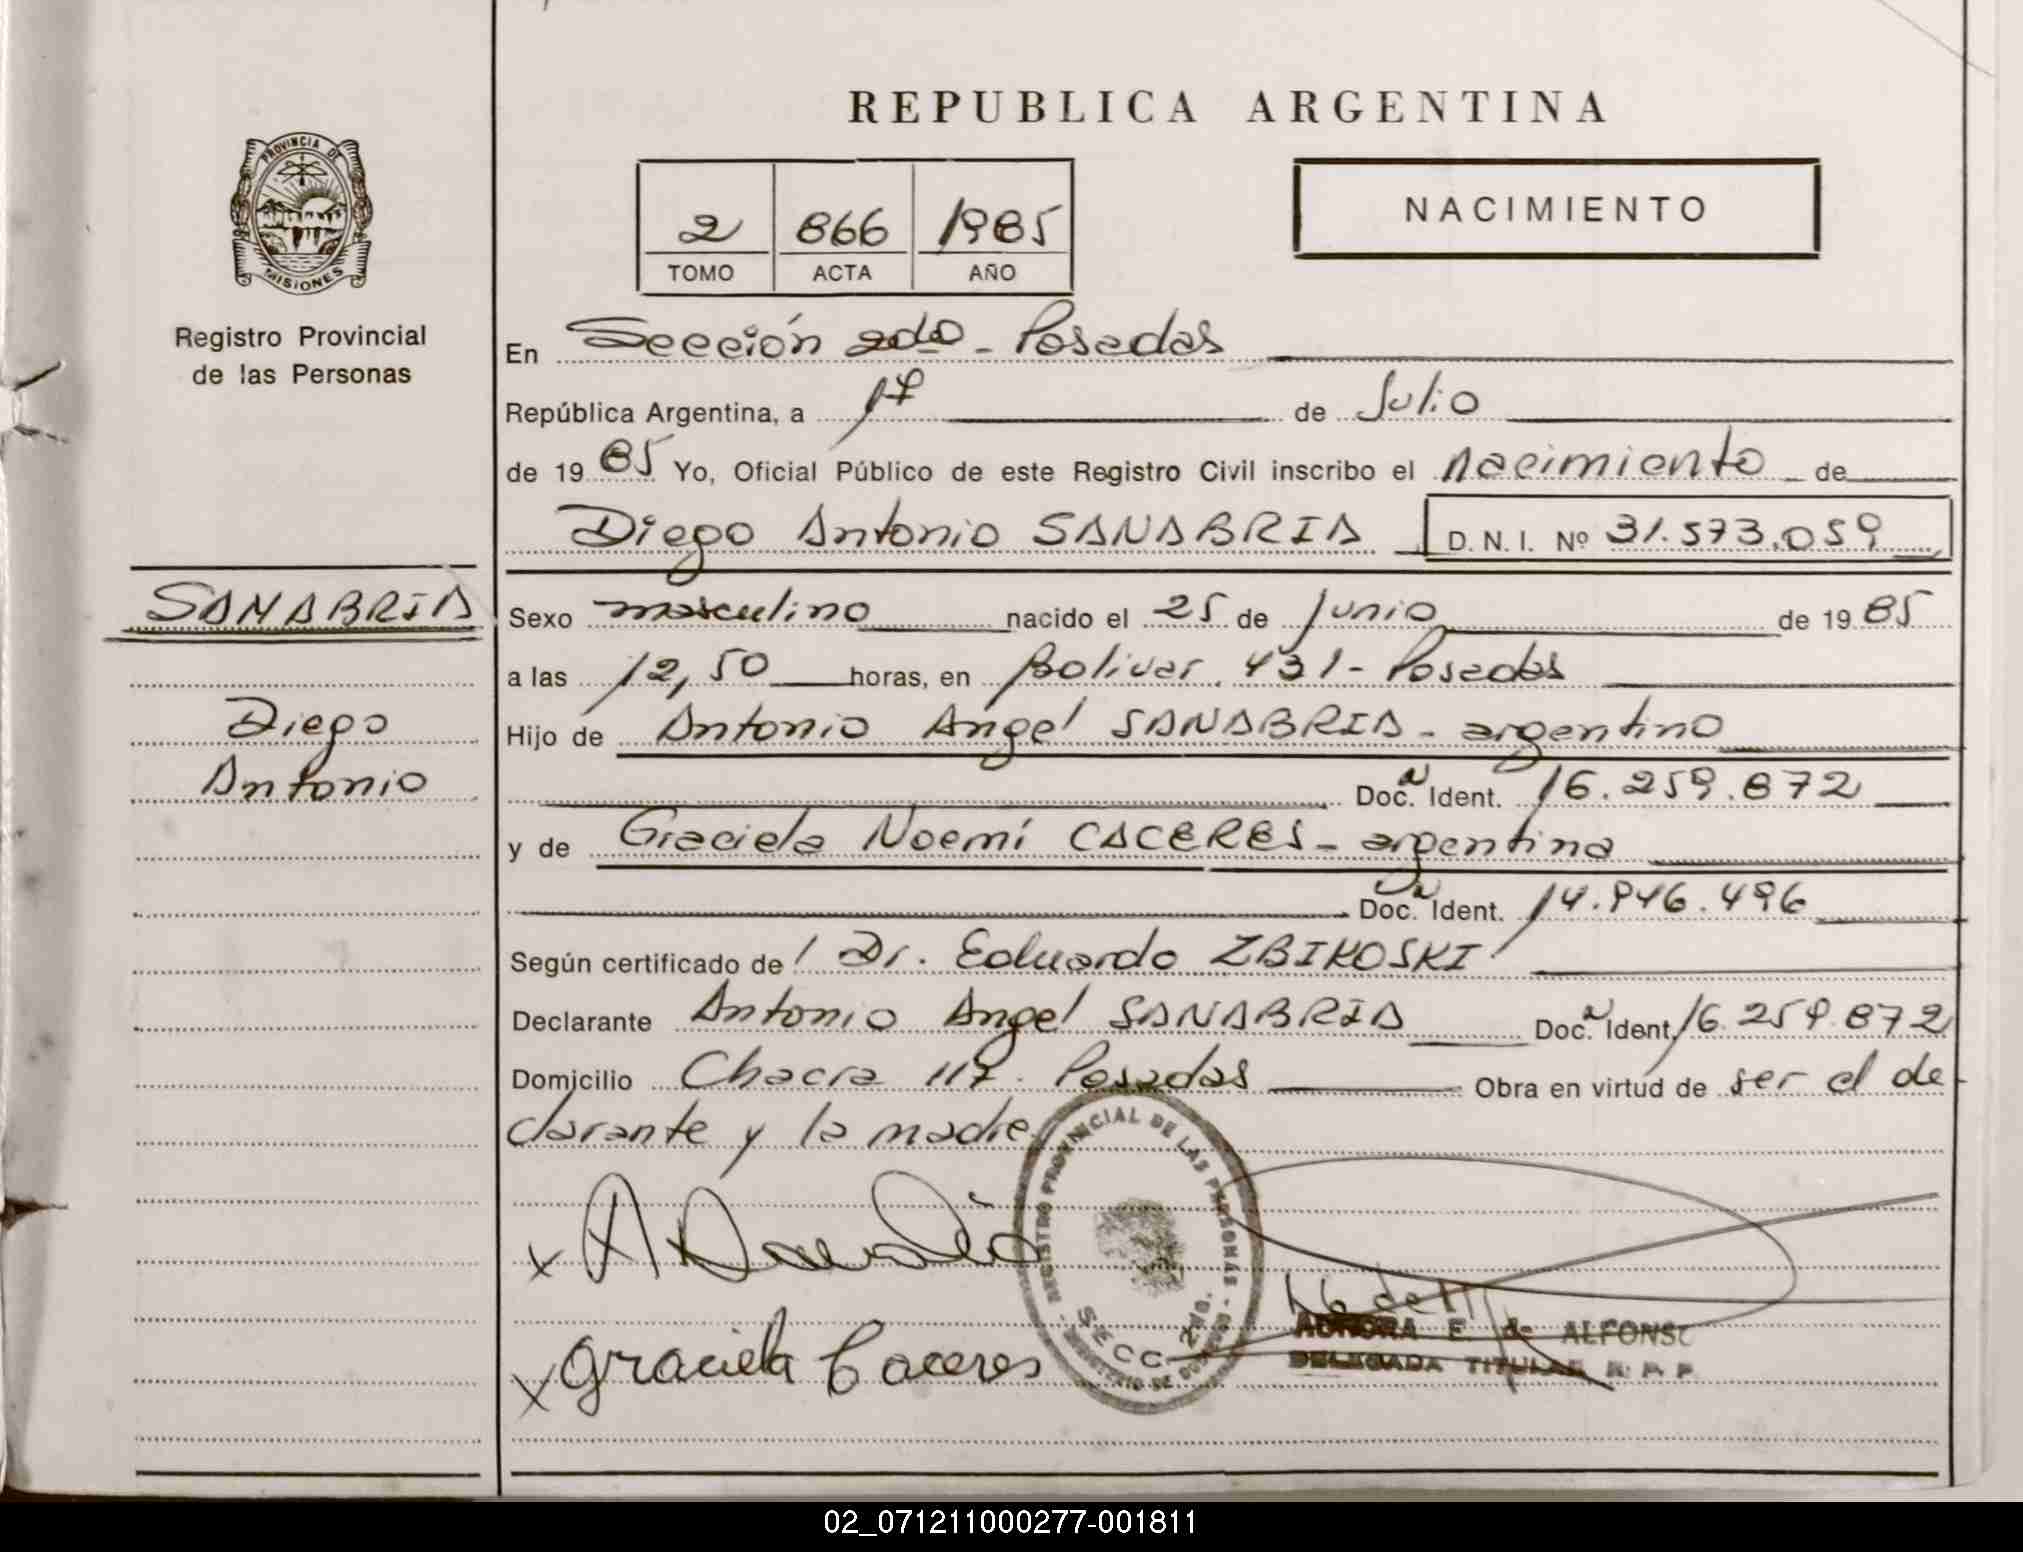 PROVINCIA DE
MISIONES
Registro Provincial
de las Personas
SANABRIA
Diego
Antonio
REPUBLICA ARGENTINA
2 866 1985
TOMO ACTA AÑO
NACIMIENTO
En Sección 2do - Posadas
República Argentina, a 17 de Julio
de 1985 Yo, Oficial Público de este Registro Civil inscribo el nacimiento de
Diego Antonio SANABRIA D. N. I. Nº 31.573.059
Sexo masculino nacido el 25 de junio de 1985
a las 12,50 horas, en Bolivar 431 - Posadas
Hijo de Antonio Angel SANABRIA - argentino
Doc. Ident. 16.259.872
y de Graciela Noemí CACERES - argentina
Doc. Ident. 14.946.496
Según certificado de Dr. Eduardo ZBIKOSKI
Declarante Antonio Angel SANABRIA Doc. Ident. 16.259.872
Domicilio Chacra 117 - Posadas Obra en virtud de ser el de
clarante y la madre
REGISTRO PROVINCIAL DE LAS PERSONAS - MINISTERIO DE GOBIERNO -
SECC 2da.
x Graciela Caceres
AURORA E. de ALFONSO
DELEGADA TITULAR R. P. P.
02_071211000277-001811